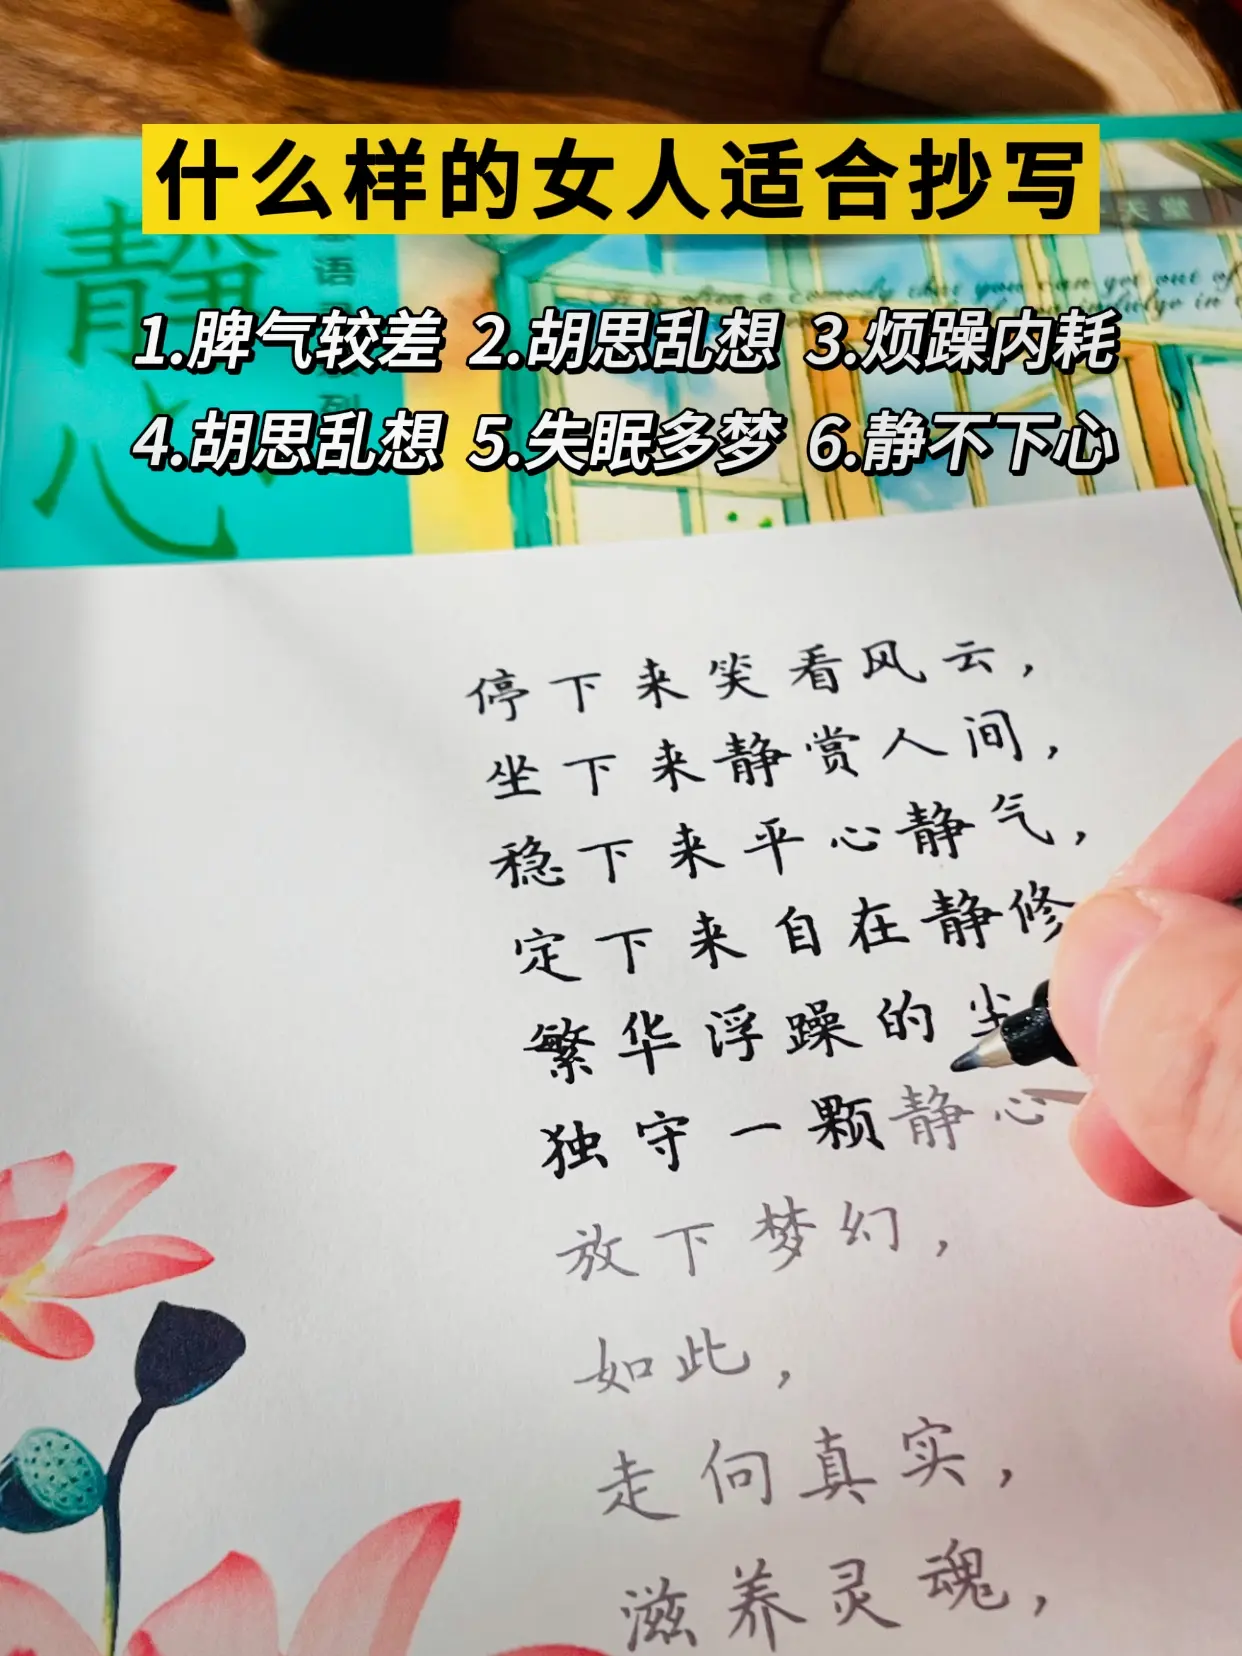 什么样的女人适合抄写
天堂
静心
语
列
it is often a comedy that you can get out of
1.脾气较差 2.胡思乱想 3.烦躁内耗
4.胡思乱想 5.失眠多梦 6.静不下心
停下来笑看风云，
坐下来静赏人间，
稳下来平心静气，
定下来自在静修
繁华浮躁的尘
独守一颗静心
放下梦幻，
如此，
走向真实，
滋养灵魂，